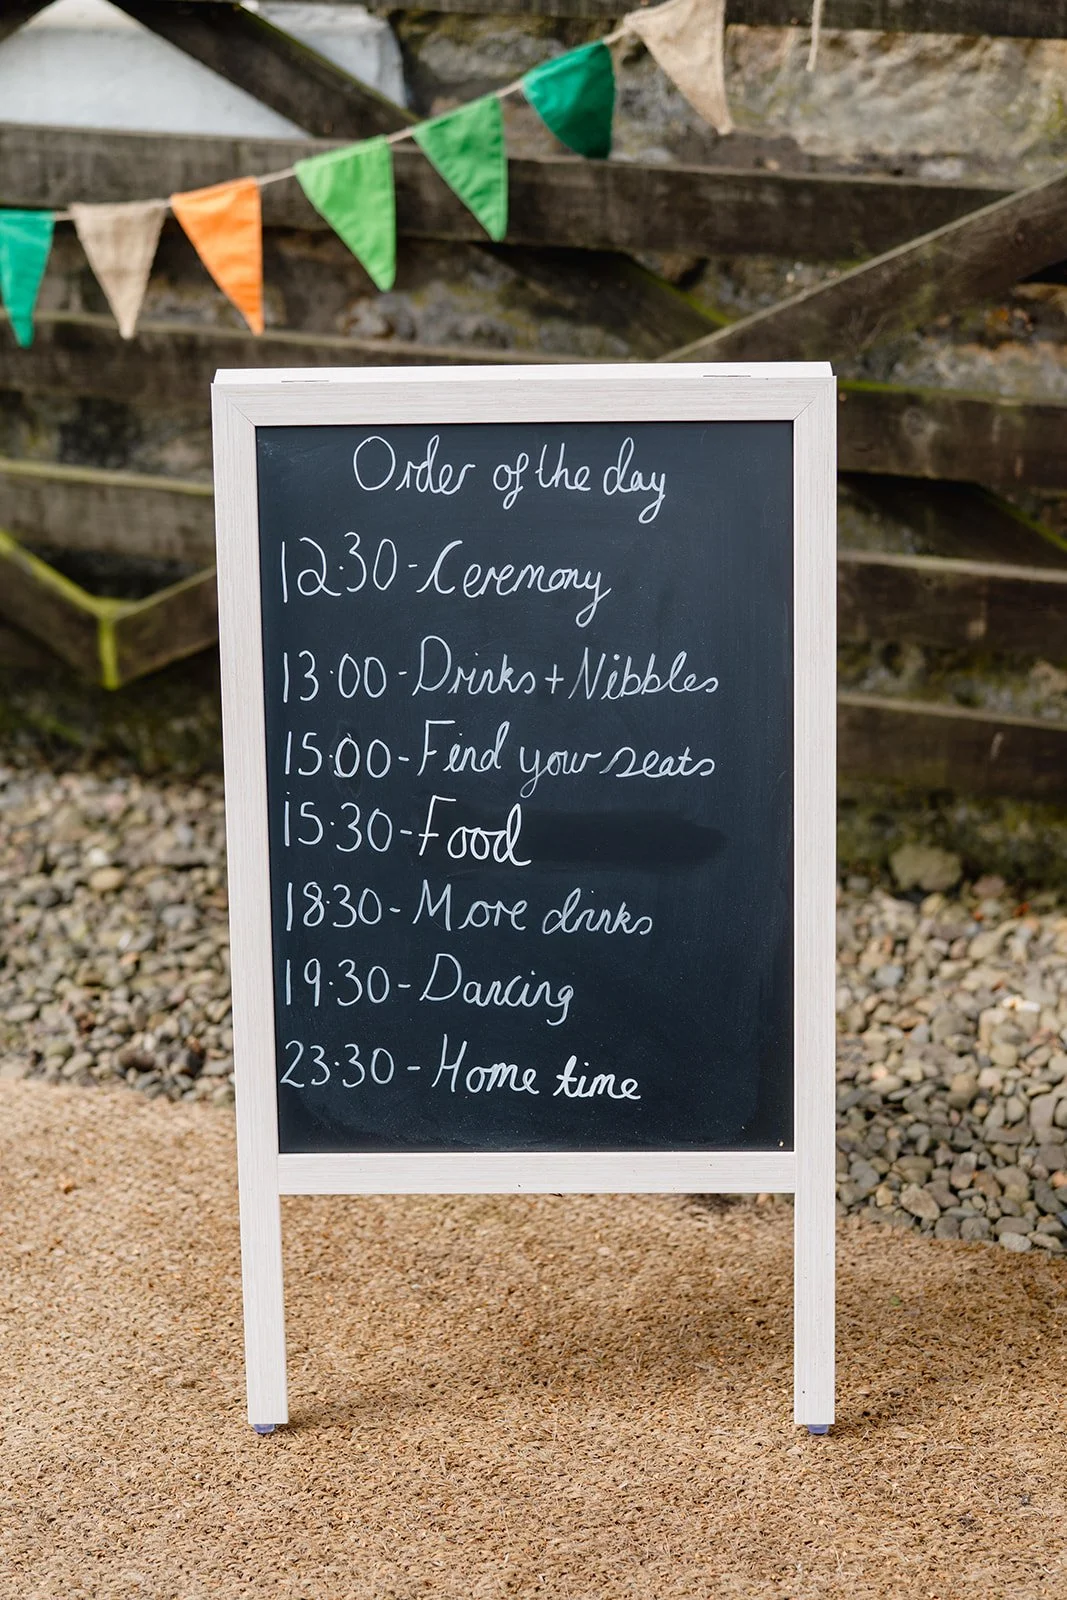 Order of the day
12.30 - Ceremony
13.00 - Drinks + Nibbles
15.00 - Find your seats
15.30 - Food
18.30 - More drinks
19.30 - Dancing
23.30 - Home time